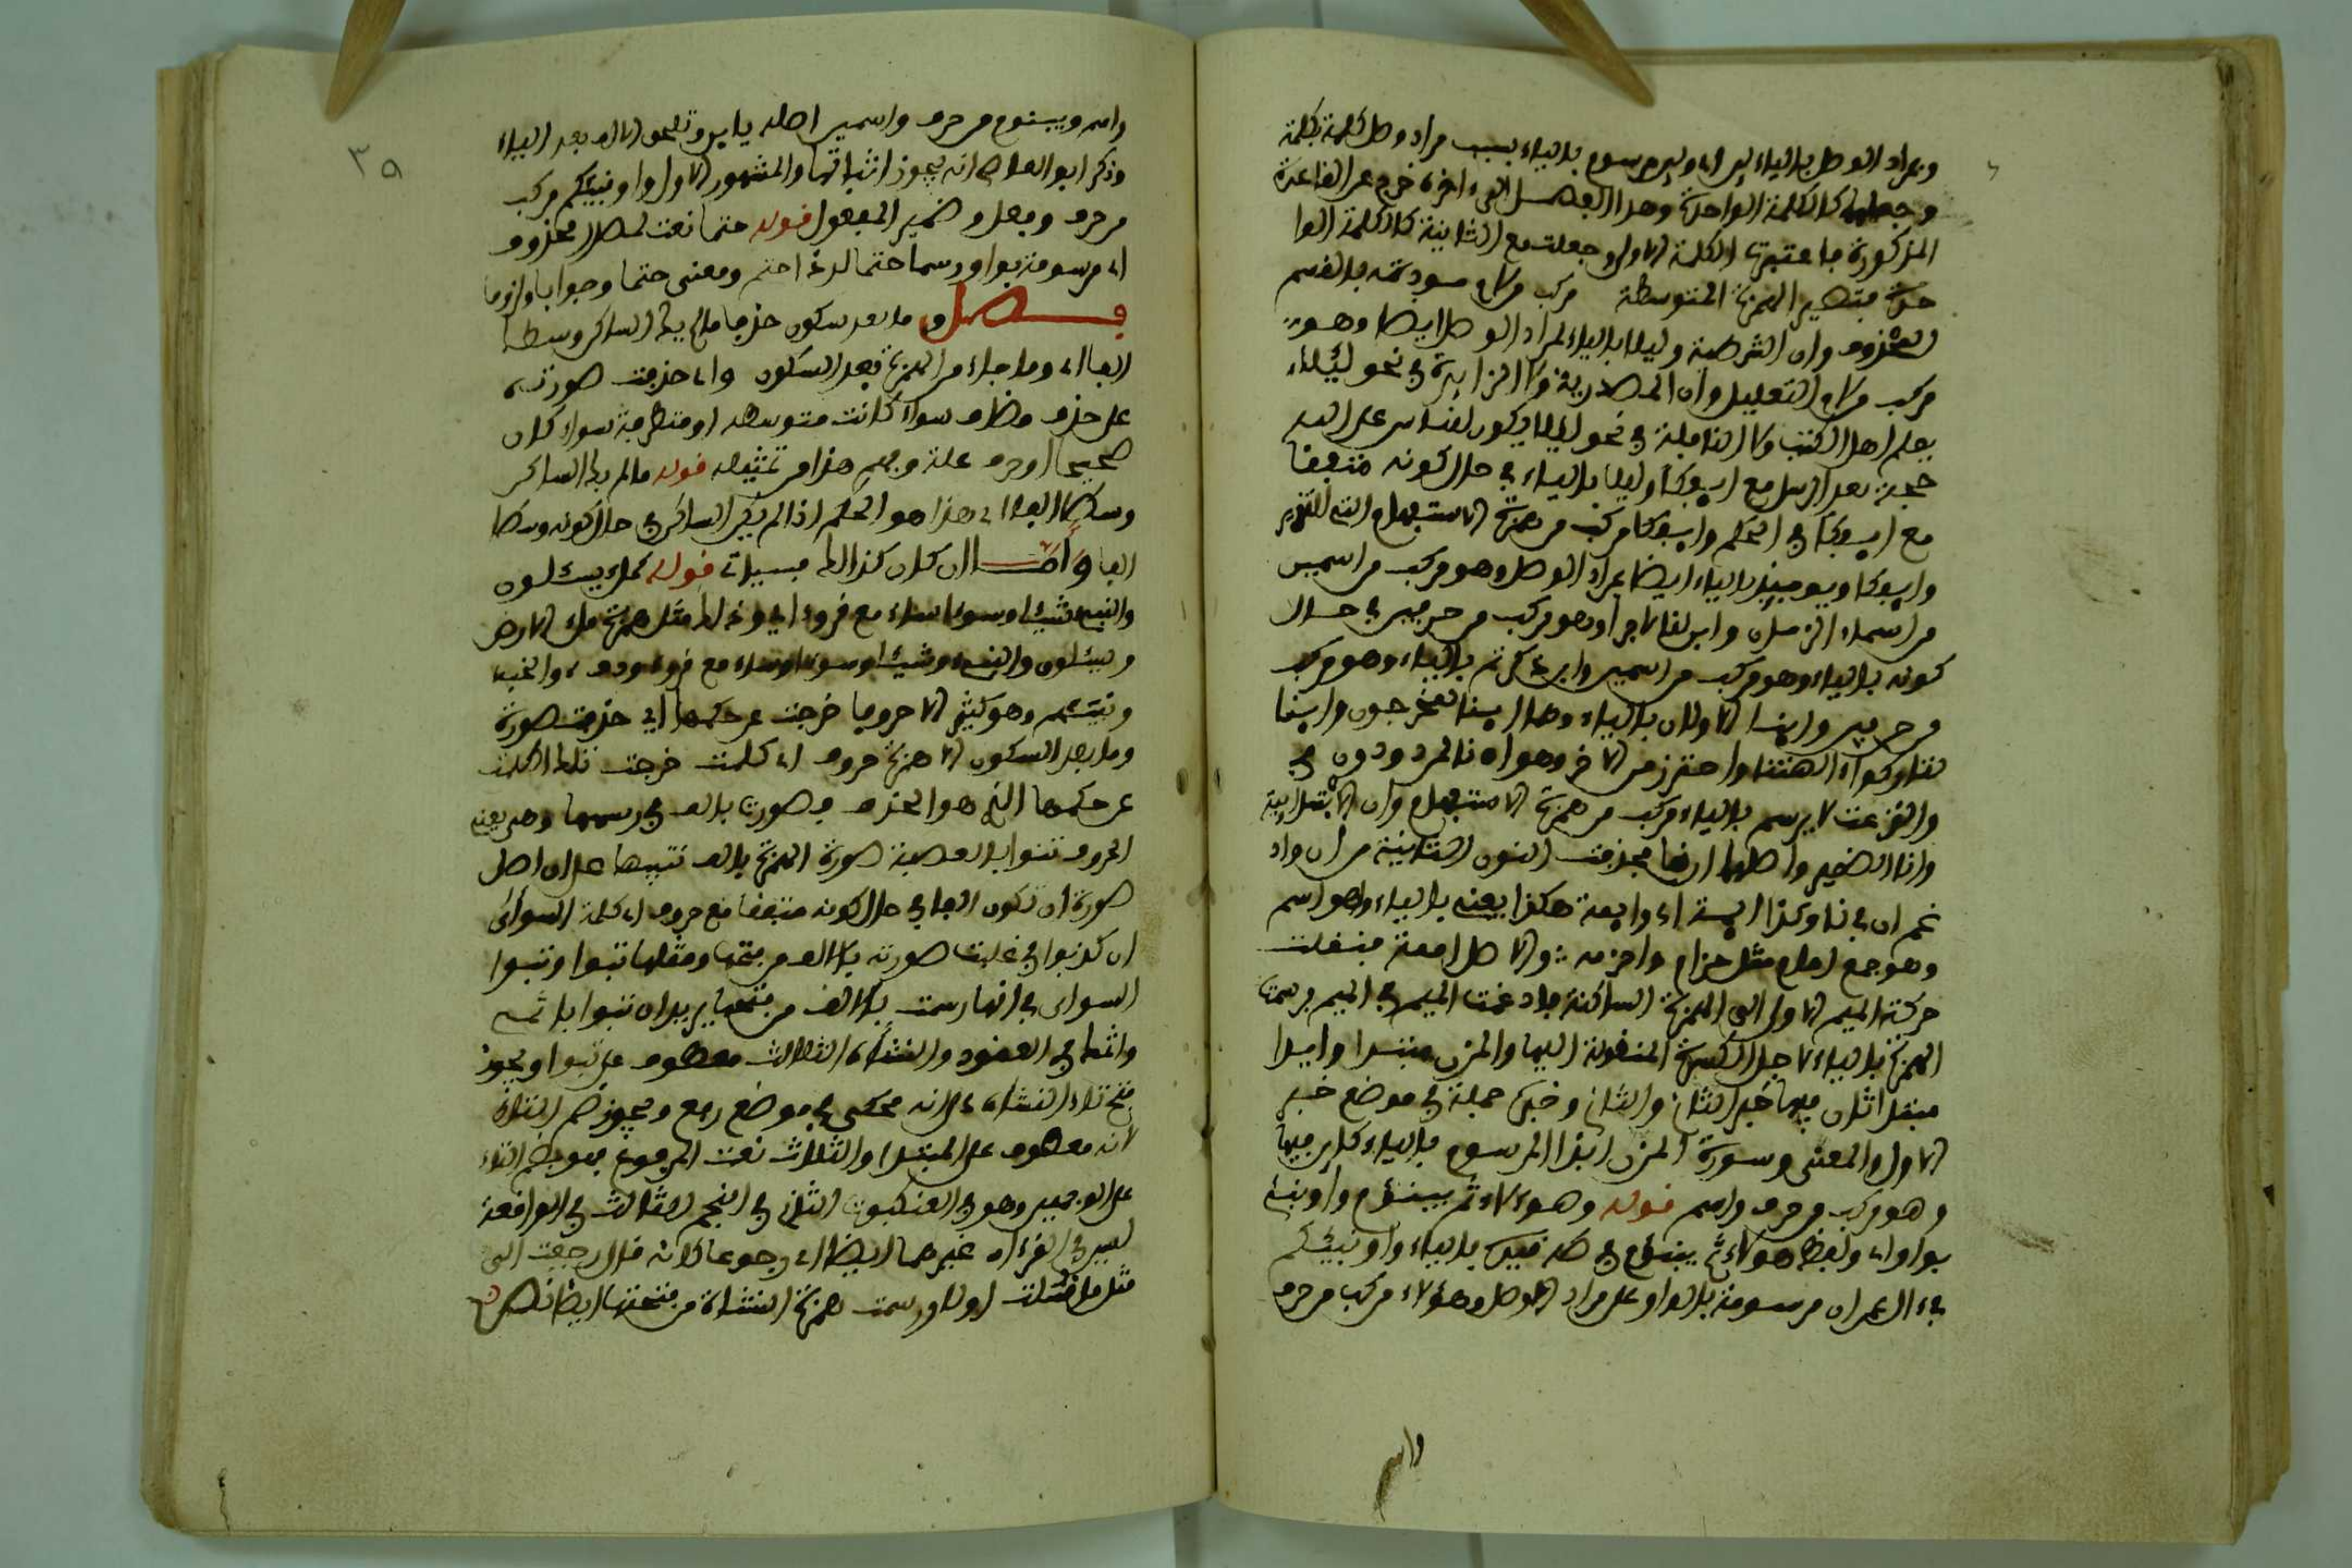 وبمراد الوصل بالياء اي مرسوم بالياء بسبب مراد وصل كلمة بكلمة
وجعلهما كالكلمة الواحدة وهذا الفصل الذي اخره خرج عن القاعدة
المذكورة باعتبر الكلمة الاولى وجعلت مع الثانية كالكلمة الوا
حدة فتصير الهمزة المتوسطة مركب من لام بالقسم
وان الشرطية وليلا بالياء لمراد الوصل ايضا وهو
مركب من لام التعليل وان المصدرية ولا الزايدة في نحو ليلا
يعلم اهل الكتب ولا النافية في نحو ليلا يكون للناس على الله
حجة بعد الرسل مع ايفكا وليلا بالياء في حال كونه متفقا
مع ايفكا في الحكم وايفكا مركب من همزة الاستفهام
وايفكا ويوميذ بالياء ايضا لمراد الوصل وهو مركب من اسمين
من اسماء الزمان واين لنا لاجرا وهو مركب من حرفين في حال
كونه بالياء وهو مركب من اسمين واين ذكرتم بالياء وهو مركب
من حرفين واينا الاولان بالياء وهما اينا لمخرجون واينا
لتاركوا الهتنا واحترز من الاخر وهو اه نا لمردودون في
والنزعت لا يرسم بالياء مركب من همزة الاستفهام وان
وانا الضمير واصلها اننا فحذفت النون الثانية من ان واد
غم ان في نا وكذا ايمة اي وايمة هكذا يعني بالياء وهو اسم
وهو جمع امام مثل حزام واحزمة والاصل اممة فنقلت
حركة الميم الاولى الى الهمزة الساكنة وادغمت الميم في الميم ورسمت
الهمزة بالياء لاجل الكسرة المنقولة اليها والمزن مبتدا وايذا
مبتدا ثان فيها خبر الثاني والثاني وخبره جملة في موضع خبر
الاول والمعنى وسورة المزن ايذا المرسوم بالياء كاين فيها
وهو مركب من حرف واسم قوله وهؤلاء ثم يبنؤم واونبئ
بواو اي ولفظ هؤلاء ثم يبنؤم في طه قيد بالياء واونبئكم
في ال عمران مرسومة بالواو على مراد الوصل وهؤلاء مركب من حرف
واسم
٣٥
واسم ويبنؤم من حرف واسمين اصله يا ابن وتحذف الالف بعد الياء
وذكر ابو العاص انه يجوز اثباتها والمشهور الاول واونبئكم مركب
من حرف وفعل وضمير المفعول قوله حتما نعت لمصدر محذوف
اي مرسومة بواو رسما حتما ومعنى حتما وجوابا ولزوما
فصل وما بعد سكون حذفا ما لم يك الساكن وسطا
الفا اي وما جاء من الهمزة بعد السكون واي حذفت صورته
على حذف مضاف سواء كانت متوسطه او متطرفة سواء كان
صحيحا او حرف علة وفهم هذا من تمثيله قوله ما لم يك الساكن
وسطا الفا اي هذا هو الحكم اذا لم يكن الساكن في حال كونه وسطا
الفا واما ان كان كذلك فسياتي قوله كملء يسئلون
والنبيء شيئا وسوءا ساء مع قروء اي وذلك مثل همزة ملء الارض
ويسئلون والنبيء وشيئا وسوءا وساء مع قروء ودفء والخبء
ونيئسهم وهو كثير الا حروفا خرجت عن حكمها اي حذفت صورة
وما بعد السكون الا همزة حروف اي كلمت خرجت تلك الكلمت
عن حكمها الذي هو الحذف فصورت بالف في رسمها وهي يعني
الحروف تنوا بالعصبة صورة الهمزة بالف تنبيها على ان اصل
صورة ان تكون الفا في حال كونه متفقا مع حروف اي كلمة السوأى
ان كذبوا في غلبت صورته بالالف من بعدها ومثلها تبوا وتبوا
السوأى في انها رسمت بالالف من بعدها يريد ان تبوا باثم
واثما في العقود والنشاة الثلاث معطوف على تبوا ويجوز
فتح تاء النشاة على انه محكي في موضع رفع ويجوز ضم التاء
لانه معطوف على المبتدا والثلاث نعت المرفوع
على الوجهين وهو في العنكبوت الثاني في النجم الثالث في الواقعة
ليس في القرءان غيرها ايضا اي رجوعا لانه قال رجعت الى
مثل ما قلت اولا ورسمت همزة النشاة من بعدها ايضا